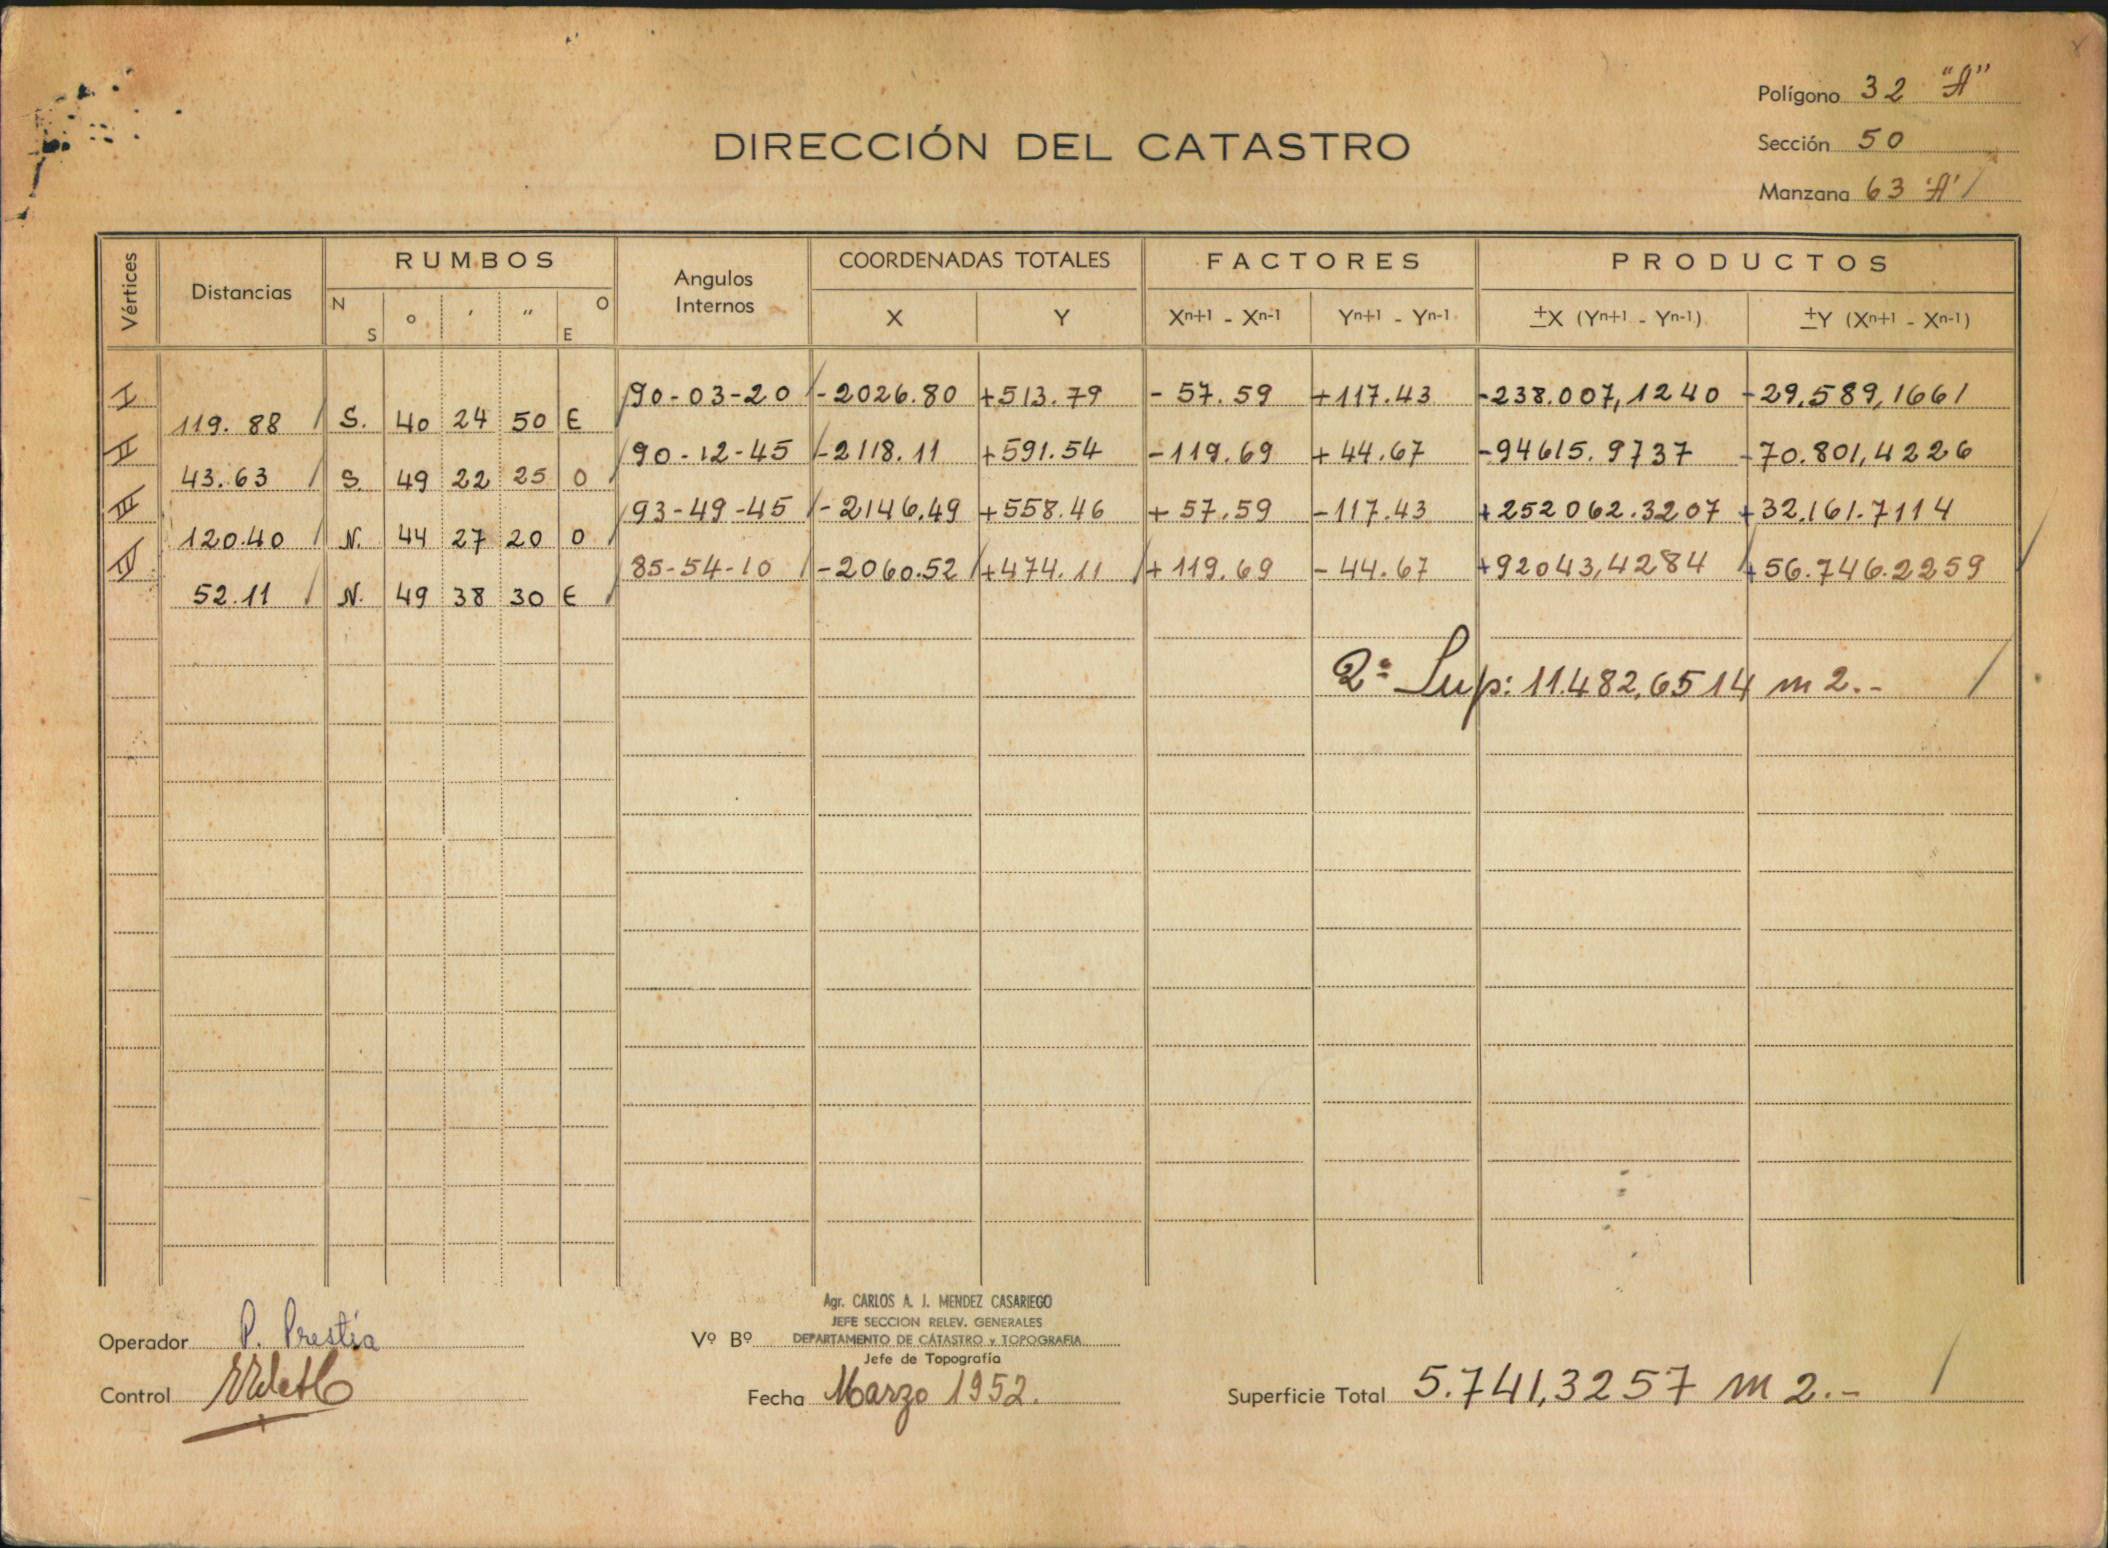 Polígono 32 "A"
DIRECCIÓN DEL CATASTRO
Sección 50
Manzana 63 'A' /
Vértices Distancias RUMBOS Angulos Internos COORDENADAS TOTALES FACTORES PRODUCTOS
N S ° ' " O E X Y Xn+1 - Xn-1 Yn+1 - Yn-1 ±X (Yn+1 - Yn-1) ±Y (Xn+1 - Xn-1)
I 90-03-20 -2026.80 +513.79 -57.59 +117.43 -238.007,1240 -29.589,1661
119.88 S. 40 24 50 E
II 90-12-45 -2118.11 +591.54 -119.69 +44.67 -94615.9737 -70.801,4226
43.63 S. 49 22 25 O
III 93-49-45 -2146.49 +558.46 +57.59 -117.43 +252062.3207 +32.161.7114
120.40 N. 44 27 20 O
IV 85-54-10 -2060.52 +474.11 +119.69 -44.67 +92043,4284 +56.746.2259
52.11 N. 49 38 30 E
2ª Sup: 11.482,6514 m2.-
Agr. CARLOS A. J. MENDEZ CASARIEGO
JEFE SECCION RELEV. GENERALES
Operador P. Prestía Vº Bº DEPARTAMENTO DE CATASTRO y TOPOGRAFIA
Jefe de Topografía
Control Fecha Marzo 1952. Superficie Total 5.741,3257 m2.-